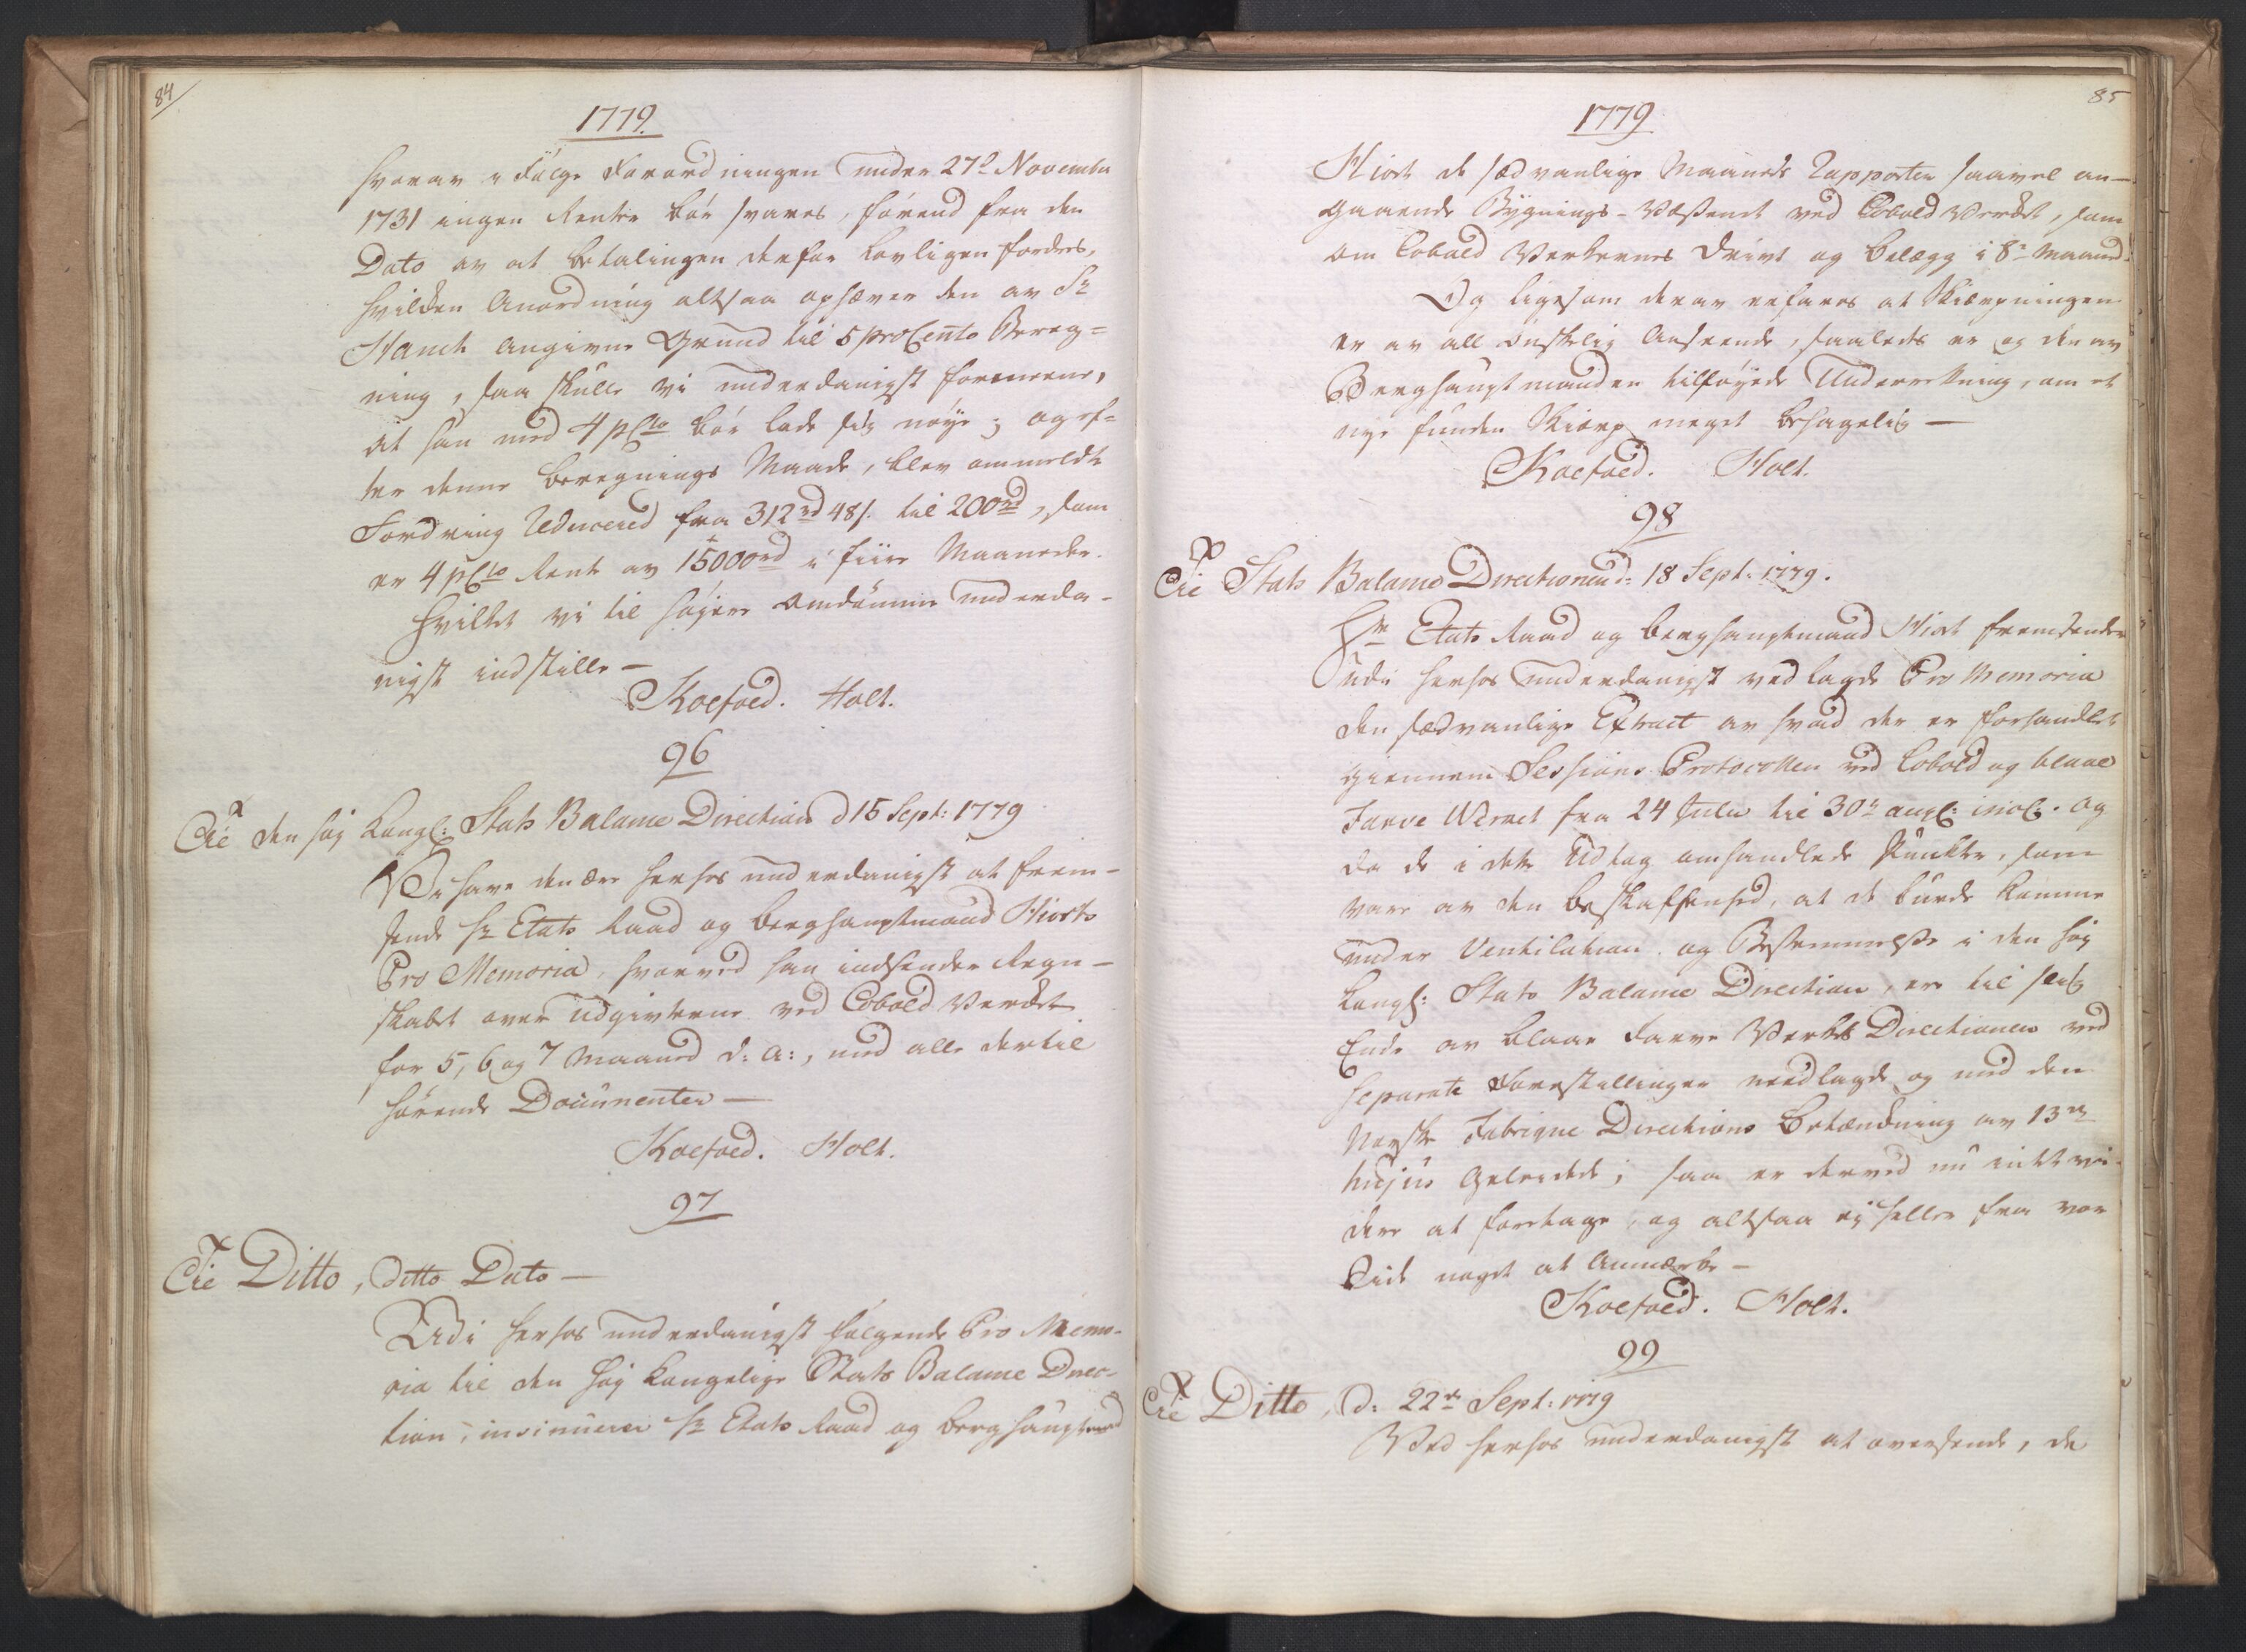 84
1779.
hvorav i Følge Forordningen under 27de November
1731 ingen Renter bør svares, førend fra den
Dato av at Betalingen derfor lovligen fordres,
hvilken Anordning altsaa ophæver den av Sr
Hanch angivne Grund til 5 pro Cento Bereg=
ning, saa skulle vi underdanigst formeene,
at han med 4 pCto bør lade sig nøye; og ef=
ter denne Beregnings Maade, blev ommeldte
Fordring Reducered fra 312 rd 48 s. til 200 rd, som
er 4 pCto Rente av 15000 rd i fiire Maaneder.
Hvilket vi til høyere Omdømme underda-
nigst indstille —
Koefoed. Holt.
96
Til den høy Kongl: Stats Balance Direction d 15 Sept: 1779
Vi have den ære herhos underdanigst at frem-
sende Hr Etats Raad og Berghauptmand Hiorts
Pro Memoria, hvorved han indsender Regn-
skabet over Udgivterne ved Cobold Verket
for 5, 6 og 7 Maaned d: A:, med alle dertil
hørende Documenter —
Koefoed. Holt.
97
Til Ditto, Ditto Dato —
Udi herhos underdanigst følgende Pro Memo-
ria til den høy Kongelige Stats Balance Direc-
tion, insinuerer Hr Etats Raad og Berghauptmand
85
1779
Hiort de sædvanlige Maaneds Rapporter saavel an-
gaaende Bygnings-Væsenet ved Cobold Verket, som
om Cobold Verkernes Drivt og Belægg i 8de Maaned.
Og ligesom derav erfares at Skiærpningen
er av all ønskelig Anseende, saaledes er og den av
Berghauptmanden tilføyede Underretning, om et
nye funden Skiærp meget behagelig —
Koefoed. Holt.
98
Til Stats Balance Directionen d: 18 Sept: 1779.
Hr Etats Raad og Berghauptmand Hiort fremsender
udi herhos underdanigst vedlagde Pro Memoria
den sædvanlige Extract av hvad der er forhandlet
giennem Sessions Protocollen ved Cobold og blaae
Farve Værket fra 24 Julii til 30te aug: incl. og
da de i dette Udtog omhandlede Puncter, som
vare av den Beskaffenhed, at de burde komme
under Ventilation og Bestemmelse i den høy
Kongl: Stats Balance Direction, ere til slig
Ende av blaae Farve Verks Directionen ved
separate Forestillinger needlagde og med den
Norske Fabrique Directions Betænkning av 13de
hujus geleidede; saa er derved nu intet vi-
dere at foretage, og altsaa ej heller fra vor
Side noget at Anmærke —
Koefoed. Holt.
99
Til Ditto, d: 22de Sept: 1779
Ved herhos underdanigst at oversende, de